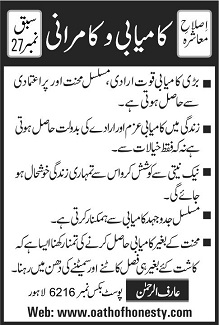 اصلاح معاشرہ
کامیابی و کامرانی
سبق نمبر 27
بڑی کامیابی قوت ارادی، مسلسل محنت اور پر اعتمادی
سے حاصل ہوتی ہے۔
زندگی میں کامیابی عزم اور ارادے کی بدولت حاصل ہوتی
ہے نہ کہ فقط خیالات سے۔
نیک نیتی سے کوشش کرو اس سے تمہاری زندگی خوشحال ہو
جائے گی۔
مسلسل جدوجہد کامیابی سے ہمکنار کرتی ہے۔
محنت کے بغیر کامیابی حاصل کرنے کی تمنا رکھنا ایسا ہے کہ
کاشت کے بغیر ہی فصل کاٹنے اور سمیٹنے کی دھن میں رہنا۔
عارف الرحمٰن پوسٹ بکس نمبر 6216 لاہور
Web: www.oathofhonesty.com